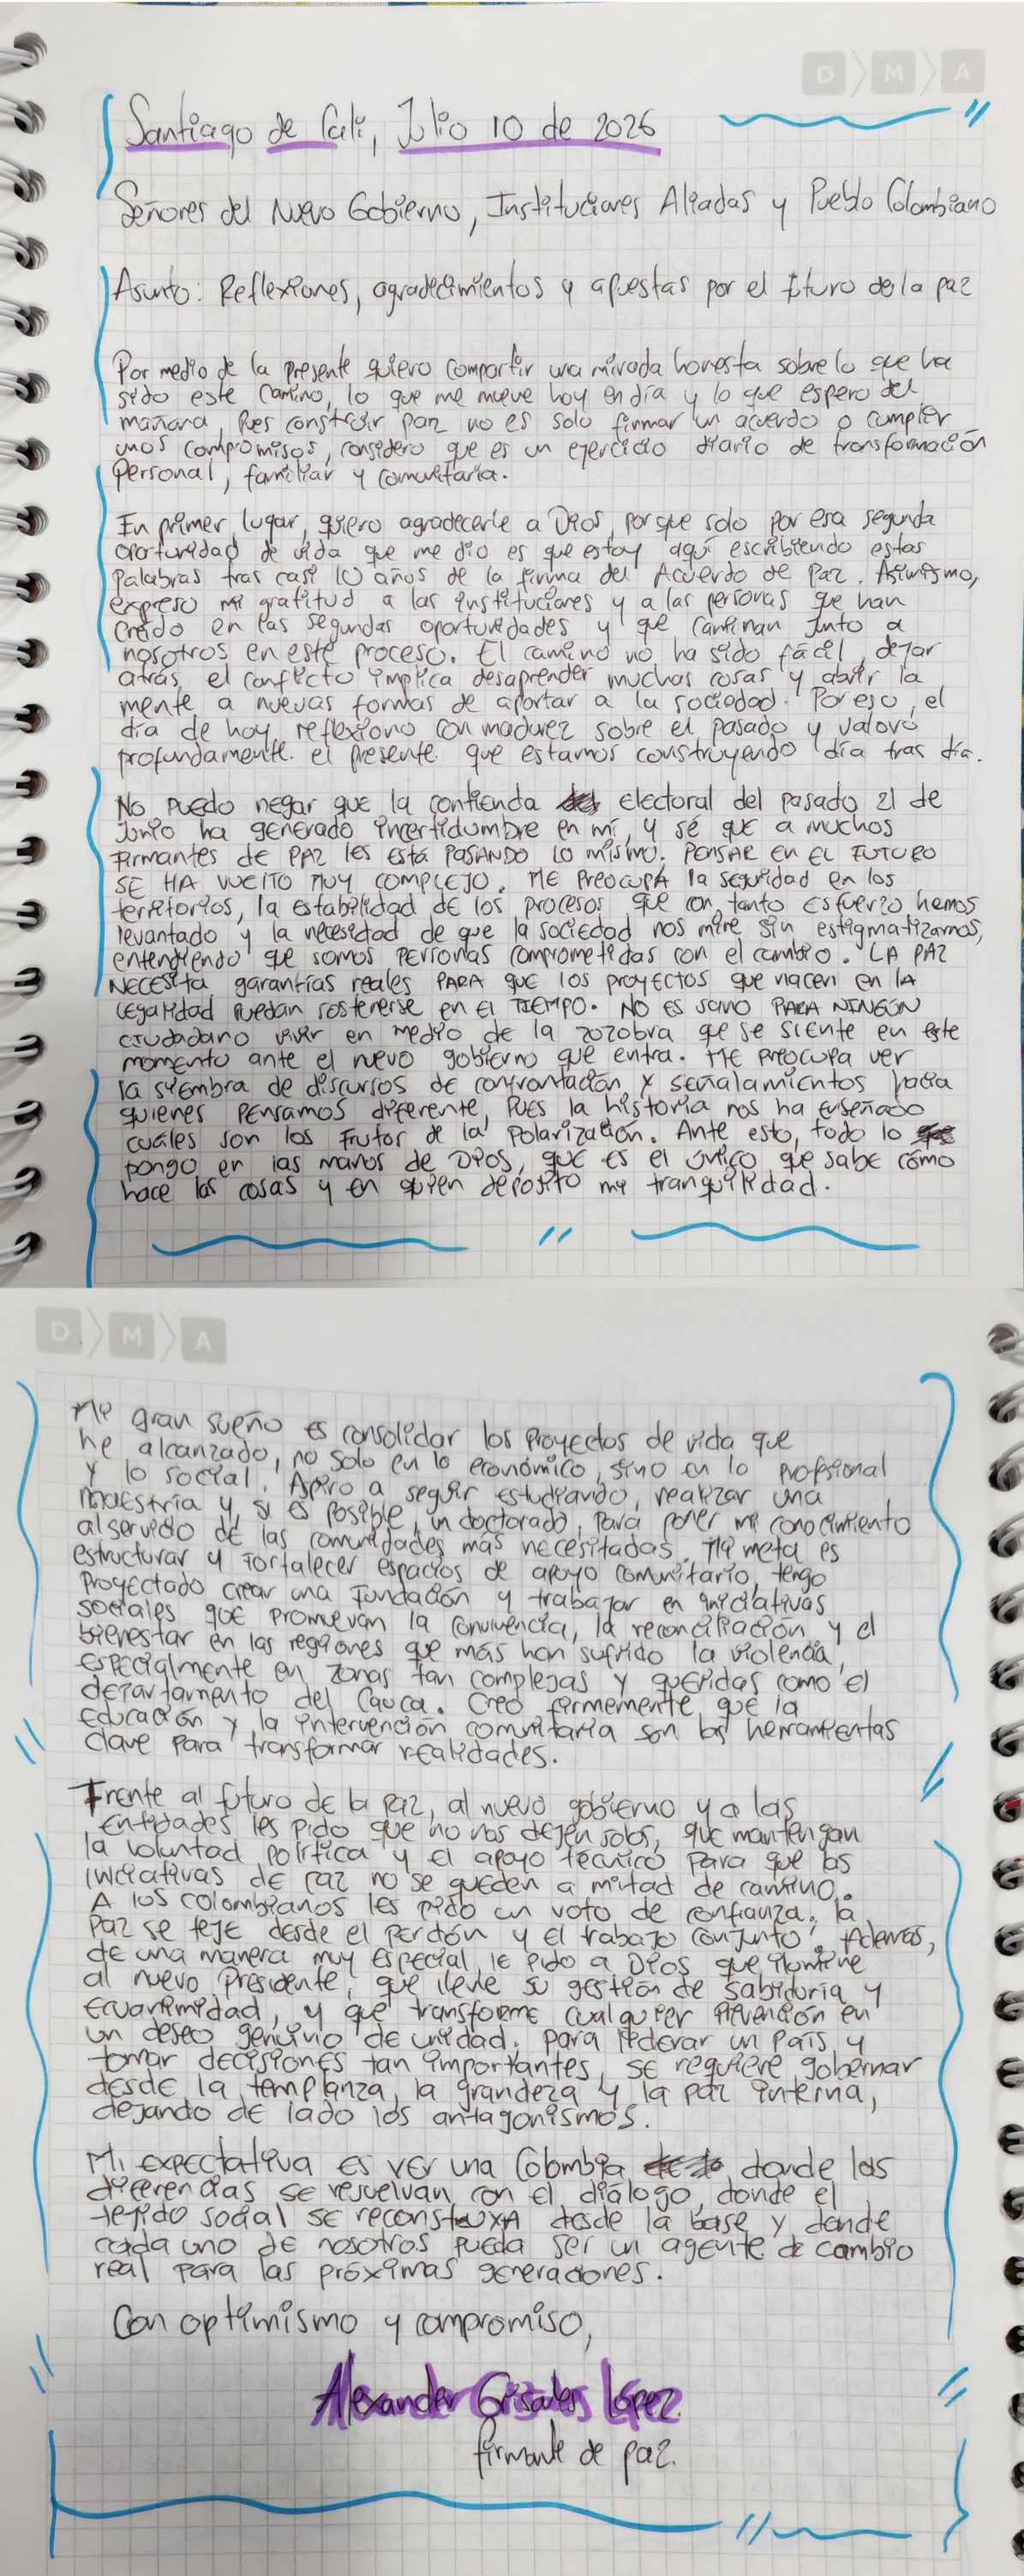 D M A
Santiago de Cali, Julio 10 de 2026
Señores del Nuevo Gobierno, Instituciones Aliadas y Pueblo Colombiano
Asunto: Reflexiones, agradecimientos y apuestas por el futuro de la paz
Por medio de la presente quiero compartir una mirada honesta sobre lo que ha
sido este camino, lo que me mueve hoy en día y lo que espero del
mañana, pues construir paz no es solo firmar un acuerdo o cumplir
unos compromisos, considero que es un ejercicio diario de transformación
personal, familiar y comunitaria.
En primer lugar, quiero agradecerle a Dios, porque solo por esa segunda
oportunidad de vida que me dio es que estoy aquí escribiendo estas
palabras tras casi 10 años de la firma del Acuerdo de Paz. Asimismo,
expreso mi gratitud a las instituciones y a las personas que han
creído en las segundas oportunidades y que caminan junto a
nosotros en este proceso. El camino no ha sido fácil, dejar
atrás el conflicto implica desaprender muchas cosas y abrir la
mente a nuevas formas de aportar a la sociedad. Por eso, el
día de hoy reflexiono con madurez sobre el pasado y valoro
profundamente el presente que estamos construyendo día tras día.
No puedo negar que la contienda electoral del pasado 21 de
Junio ha generado incertidumbre en mí, y sé que a muchos
firmantes de PAZ les está PASANDO LO MISMO. PENSAR EN EL FUTURO
SE HA VUELTO MUY COMPLEJO. ME PREOCUPA la seguridad en los
territorios, la estabilidad de los procesos que con tanto esfuerzo hemos
levantado y la necesidad de que la sociedad nos mire sin estigmatizarnos,
entendiendo que somos PERSONAS COMPROMETIDAS con el cambio. LA PAZ
NECESITA garantías reales PARA que los proyectos que nacen en LA
legalidad puedan sostenerse en el TIEMPO. NO ES SANO PARA NINGÚN
ciudadano vivir en medio de la zozobra que se siente en este
momento ante el nuevo gobierno que entra. ME PREOCUPA ver
la siembra de discursos de confrontación y señalamientos hacia
quienes PENSAMOS diferente, PUES la historia nos ha enseñado
cuáles son los frutos de la Polarización. Ante esto, todo lo
pongo en las manos de Dios, que es el único que sabe cómo
hace las cosas y en quien deposito mi tranquilidad.
D M A
Mi gran sueño es consolidar los proyectos de vida que
he alcanzado, no solo en lo económico, sino en lo profesional
y lo social. Aspiro a seguir estudiando, realizar una
maestría y, si es posible, un doctorado, para poner mi conocimiento
al servicio de las comunidades más necesitadas. Mi meta es
estructurar y fortalecer espacios de apoyo comunitario, tengo
proyectado crear una fundación y trabajar en iniciativas
sociales que promuevan la convivencia, la reconciliación y el
bienestar en las regiones que más han sufrido la violencia,
especialmente en zonas tan complejas y queridas como el
departamento del Cauca. Creo firmemente que la
Educación y la intervención comunitaria son las herramientas
clave para transformar realidades.
Frente al futuro de la paz, al nuevo gobierno y a las
entidades les pido que no nos dejen solos, que mantengan
la voluntad política y el apoyo técnico para que las
iniciativas de paz no se queden a mitad de camino.
A los colombianos les pido un voto de confianza: la
paz se teje desde el perdón y el trabajo conjunto. Además,
de una manera muy especial, le pido a Dios que ilumine
al nuevo presidente, que llene su gestión de sabiduría y
ecuanimidad, y que transforme cualquier prevención en
un deseo genuino de unidad. Para liderar un país y
tomar decisiones tan importantes, se requiere gobernar
desde la templanza, la grandeza y la paz interna,
dejando de lado los antagonismos.
Mi expectativa es ver una Colombia donde las
diferencias se resuelvan con el diálogo, donde el
tejido social se reconstruya desde la base y donde
cada uno de nosotros pueda ser un agente de cambio
real para las próximas generaciones.
Con optimismo y compromiso,
Alexander Grisales López
firmante de paz.